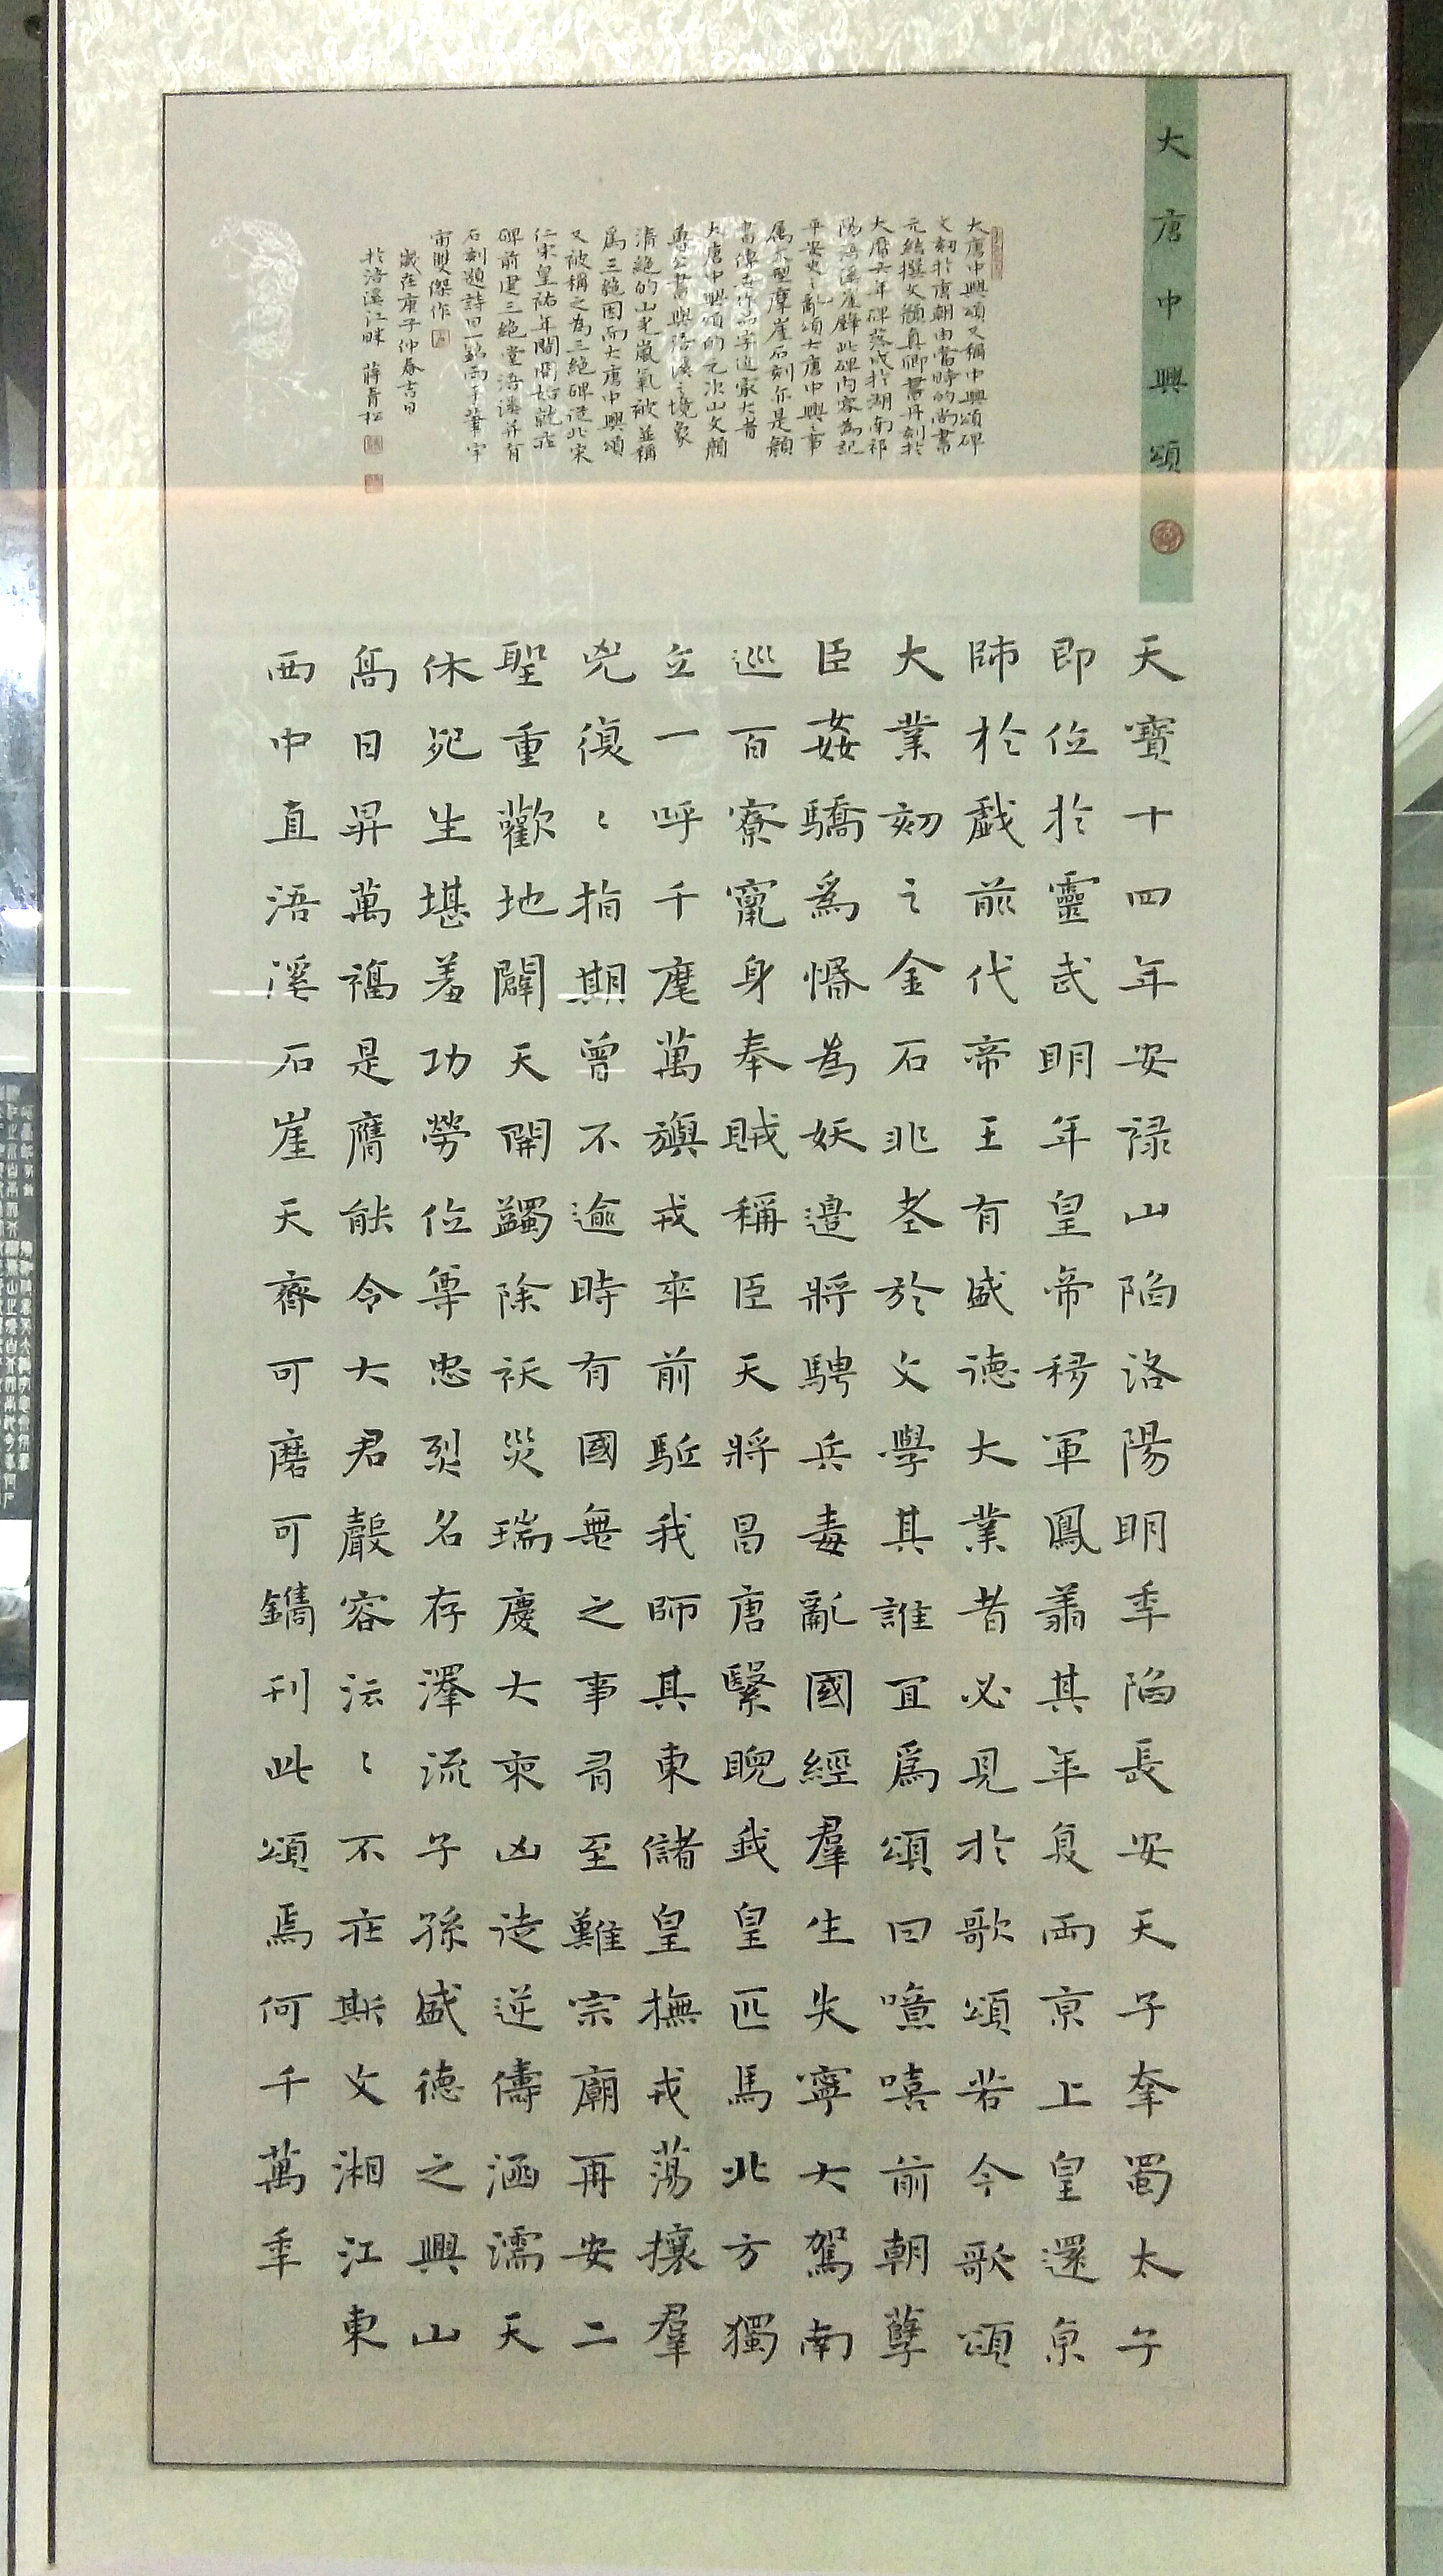 大唐中興頌
大唐中興頌又稱中興頌碑
文刻於唐朝由當時的尚書
元結撰文顏真卿書丹刻於
大曆六年碑落成於湖南祁
陽浯溪崖壁此碑內容為記
平安史之亂頌大唐中興之事
屬大型摩崖石刻亦是顏
書傳世作品字近最大者
大唐中興頌的元次山文顏
魯公書與浯溪之境象
清絕的山光嵐氣被並稱
為三絕因而大唐中興頌
又被稱之為三絕碑從北宋
仁宋皇祐年間開始就在
碑前建三絕堂浯溪并有
石刻題詩曰一銘兩手筆宇
宙雙傑作
歲在庚子仲春吉日
於浯溪江畔 蔣青松
天寶十四年安禄山陷洛陽明季陷長安天子幸蜀太子
即位於靈武明年皇帝移軍鳳翔其年复兩京上皇還京
師於戲前代帝王有盛德大業者必見於歌頌若今歌頌
大業刻之金石非老於文學其誰宜為頌曰噫嘻前朝孽
臣姦驕為惽為妖邊將騁兵毒亂國經羣生失寧大駕南
巡百寮竄身奉賊稱臣天將昌唐繄睨我皇匹馬北方獨
立一呼千麾萬旟戎卒前駈我師其東儲皇撫戎蕩攘羣
兇復〻指期曾不逾時有國無之事有至難宗廟再安二
聖重歡地闢天開蠲除袄災瑞慶大來凶徒逆儔涵濡天
休死生堪羞功勞位尊忠烈名存澤流子孫盛德之興山
高日昇萬福是膺能令大君聲容沄〻不在斯文湘江東
西中直浯溪石崖天齊可磨可鐫刊此頌焉何千萬季